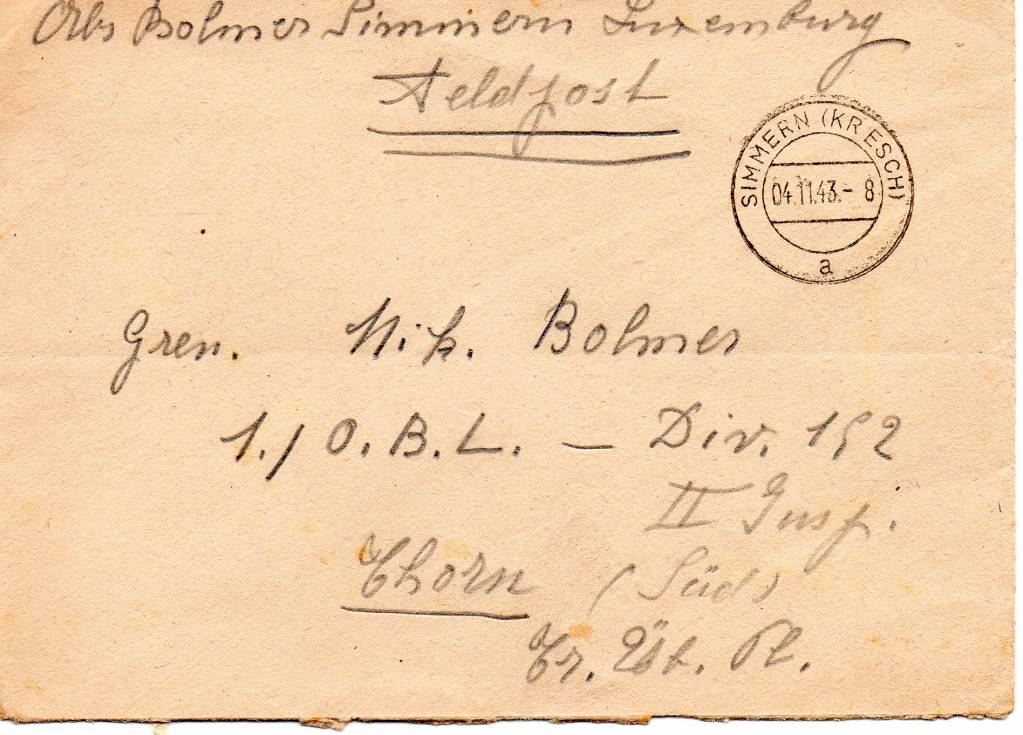 Bolmer Simmern Luxemburg
Feldpost
SIMMERN (KR ESCH)
04.11.43.- 8
a
Gren. Nik. Bolmer
1./ O.B.L. — Div. 152
II Insp.
Thorn (Süd)
Tr. Üb. Pl.